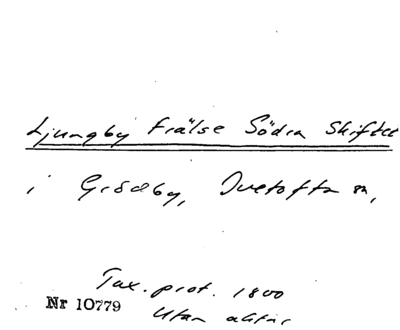 Ljungby Frälse Södra Skiftet
i Grödby, Ivetofta sn,
Tax. prot. 1800
Nr 10779
Utan aktnr